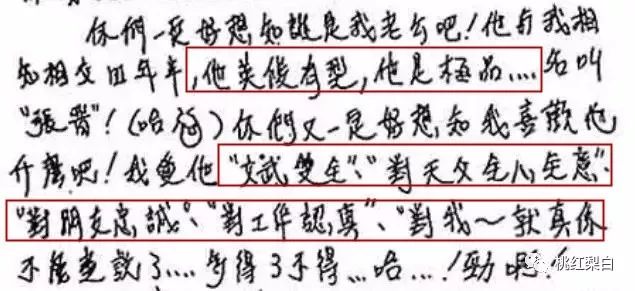 你們一定好想知誰是我老公吧！他与我相
知相交四年半，他英俊有型，他是極品....名叫
"張晉"！(哈) 你們又一定好想知我喜歡他
什麼吧！我覺他"文武雙全"、"對天父全心全意"、
"對朋友忠誠"、"對工作認真"、"對我～就真係
不能盡數了....多得了不得...哈...！勁啊！
桃红梨白